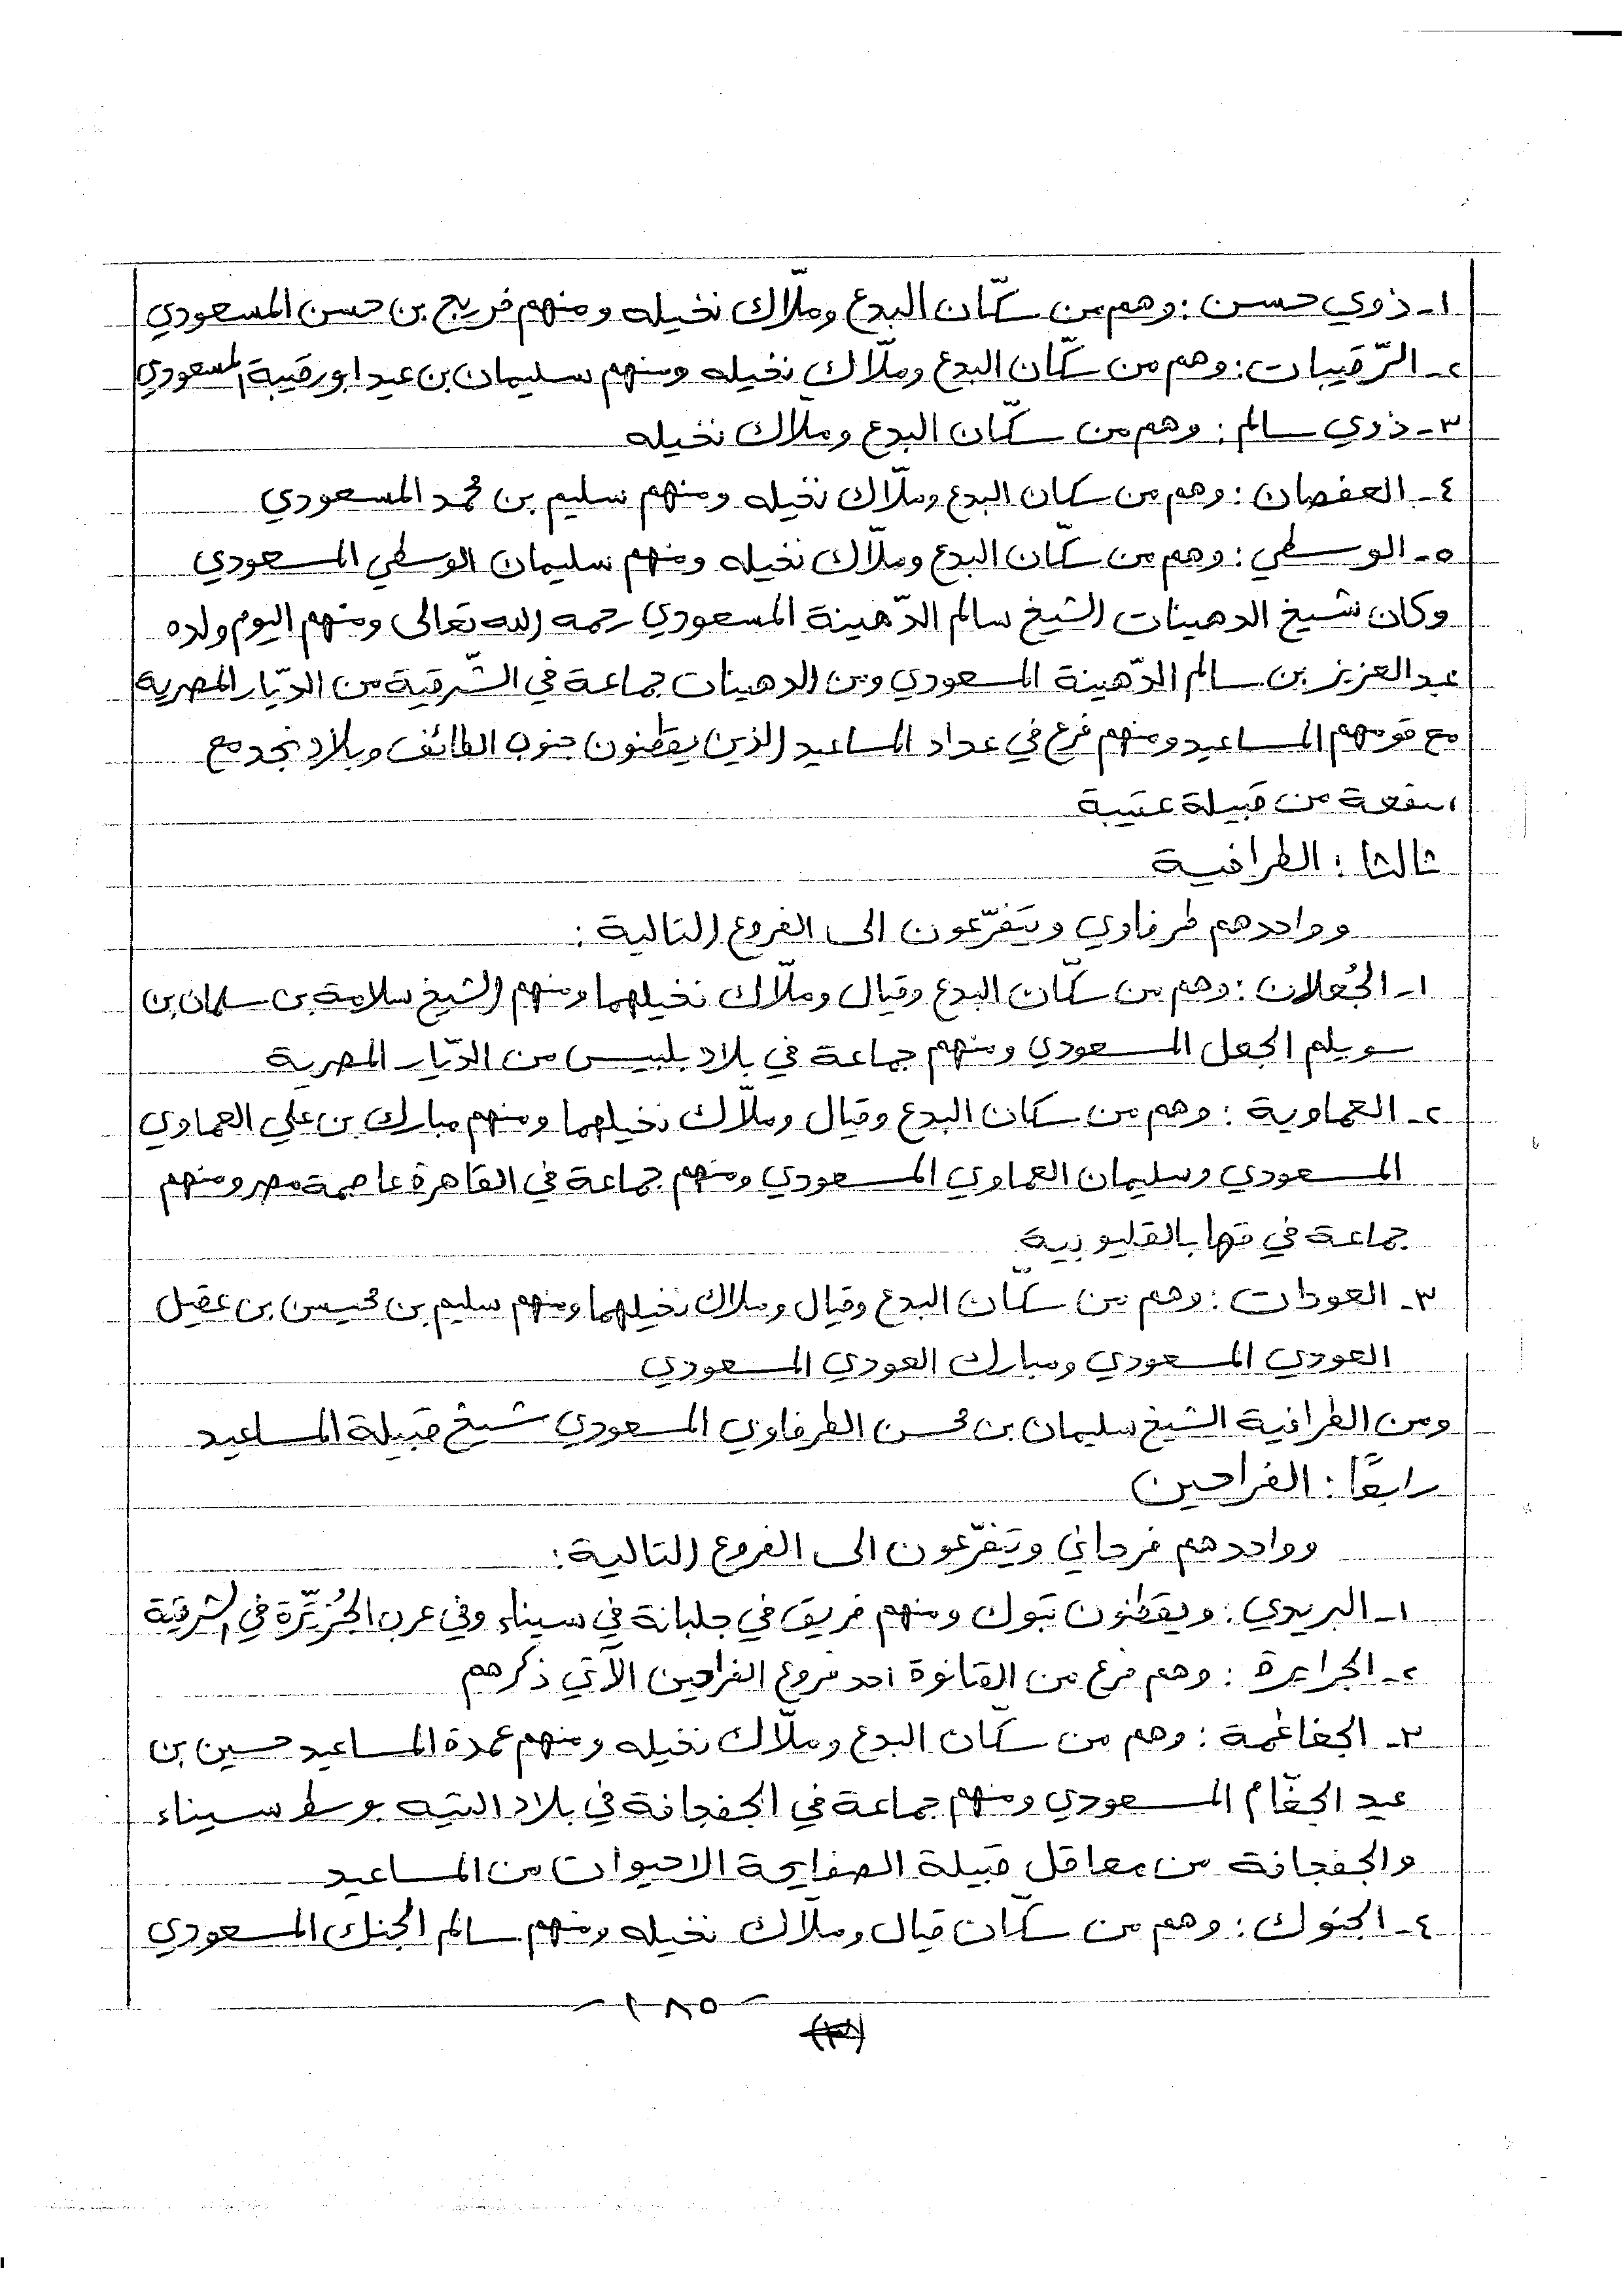 ١ـ ذوي حسن : وهم من سكّان البدع وملّاك نخيله ومنهم فريج بن حسن المسعودي
٢ـ الرّقيبات : وهم من سكّان البدع وملّاك نخيله ومنهم سليمان بن عيد ابورقيبة المسعودي
٣ـ ذوي سالم : وهم من سكّان البدع وملّاك نخيله
٤ـ العفصان : وهم من سكان البدع وملّاك نخيله ومنهم سليم بن محمد المسعودي
٥ـ الوسطي : وهم من سكّان البدع وملّاك نخيله ومنهم سليمان الوسطي المسعودي
وكان شيخ الدهينات الشيخ سالم الدّهينة المسعودي رحمه الله تعالى ومنهم اليوم ولده
عبدالعزيز بن سالم الدّهينة المسعودي ومن الدهينات جماعة في الشّرقية من الديّار المصرية
مع قومهم المساعيد ومنهم فرع في عداد المساعيد الذين يقطنون جنوب الطائف وبلاد نجد مع
من قبيلة عتيبة
ثالثا : الطرافية
وواحدهم طرفاوي ويتفرّعون الى الفروع التالية :
١ـ الجُعلان : وهم من سكّان البدع وقيال وملّاك نخيلهما ومنهم الشيخ سلامة بن سلمان بن
سويلم الجعل المسعودي ومنهم جماعة في بلاد بلبيس من الديّار المصرية
٢ـ العماوية : وهم من سكان البدع وقيال وملّاك نخيلهما ومنهم مبارك بن علي العماوي
المسعودي وسليمان العماوي المسعودي ومنهم جماعة في القاهرة عاصمة مصر ومنهم
جماعة في قها بالقليوبية
٣ـ العودات : وهم من سكّان البدع وقيال وملاك نخيلهما ومنهم سليم بن محيسن بن عقيل
العودي المسعودي ومبارك العودي المسعودي
ومن الطرافية الشيخ سليمان بن محسن الطرفاوي المسعودي شيخ قبيلة المساعيد
رابعًا : الفراحين
وواحدهم فرحاني ويتفرّعون الى الفروع التالية :
١ـ البريدي : ويقطنون تبوك ومنهم فريق في جلبانة في سيناء وفي عرب الجُزيّرة في الشرقية
٢ـ الجرايرة : وهم فرع من القانوة احد فروع الفراحين الآتي ذكرهم
٣ـ الجفاغمة : وهم من سكّان البدع وملّاك نخيله ومنهم عمدة المساعيد حسين بن
عيد الجغّام المسعودي ومنهم جماعة في الجفجافة في بلاد التيه بوسط سيناء
والجفجافة من معاقل قبيلة الصفايحة الاحيوات من المساعيد
٤ـ الجنوك : وهم من سكّان قيال وملّاك نخيله ومنهم سالم الجنك المسعودي
ـ ١٨٥ ـ